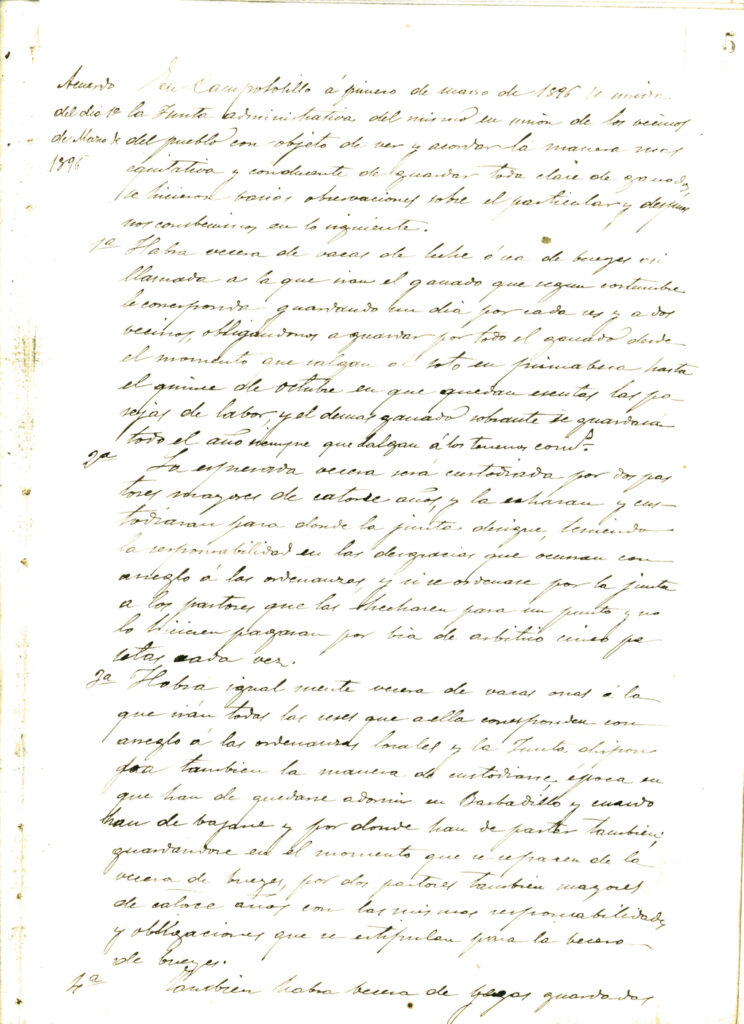 5
Acuerdo
del dia 1º
de Marzo de
1896
En Campolotillo á primero de marzo de 1896 se reunio
la Junta administrativa del mismo en unión de los vecinos
del pueblo con objeto de ver y acordar la manera mas
equitativa y conducente de guardar toda clase de ganados,
se hicieron varias observaciones sobre el particular y despues
nos combenimos en lo siguiente.
1ª Habra vecera de vacas de leche ó sea de bueyes asi
llamada a la que iran el ganado que segun costumbre
le corresponda guardando un dia por cada res y a dos
vecinos, obligandonos a guardar por todo el ganado desde
el momento que salgan al soto en primabera hasta
el quince de octubre en que quedan esentas las pa
rejas de labor, y el demas ganado sobrante se guardará
todo el año siempre que salgan á los terrenos com.s
2ª La espresada vecera sera custodiada por dos pas
tores mayores de catorce años, y la echaran y cus
todiaran para donde la junta designe, teniendo
la responsabilidad en las desgracias que ocurran con
arreglo á las ordenanzas, y si se ordenase por la junta
a los pastores que las hecharen para un punto y no
lo hicieren pagaran por bia de arbitrio cinco pe
setas cada vez.
3ª Habrá igual mente vecera de vacas onas á la
que irán todas las reses que a ella corresponden con
arreglo á las ordenanzas locales y la Junta dispon
dra tambien la manera de custodiarse, época en
que han de quedarse a dormir en Barbadillo y cuando
han de bajarse y por donde han de partar tambien;
guardandose en el momento que se separen de la
vecera de bueyes, por dos pastores tambien mayores
de catorce años con las mismas responsabilidades
y obligaciones que se estipulan para la becera
de bueyes.
4ª Tambien habra becera de yeguas guardados